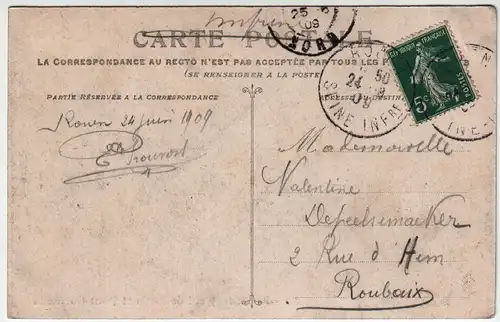 imprimé
CARTE POSTALE
LA CORRESPONDANCE AU RECTO N'EST PAS ACCEPTÉE PAR TOUS LES PAYS
(SE RENSEIGNER A LA POSTE)
PARTIE RÉSERVÉE A LA CORRESPONDANCE
25 - 6
09
NORD
24 - 6
09
SEINE INFRE
REPUBLIQUE FRANÇAISE
5c
POSTES
Rouen 24 juin 1909
Prouvost
Mademoiselle
Valentine
Depechemacker
2 Rue d'Hem
Roubaix